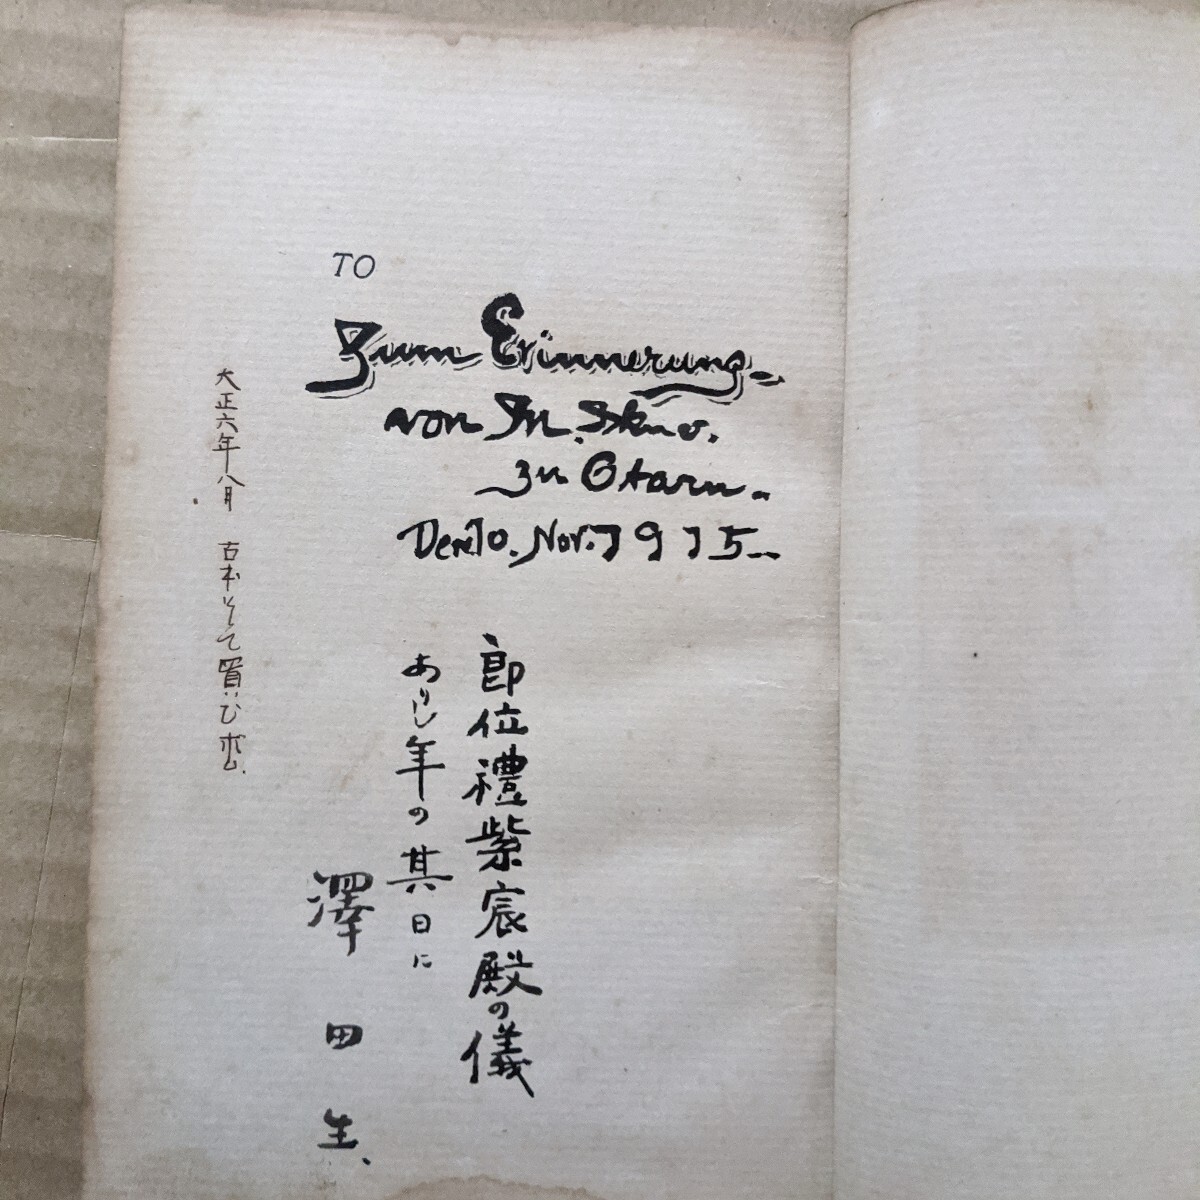 TO
Zum Erinnerung
von
zu Otaru
Den 10. Nov. 1915
即位禮紫宸殿の儀
ありし年の其日に
澤田生、
大正六年八月 古本として買ひ